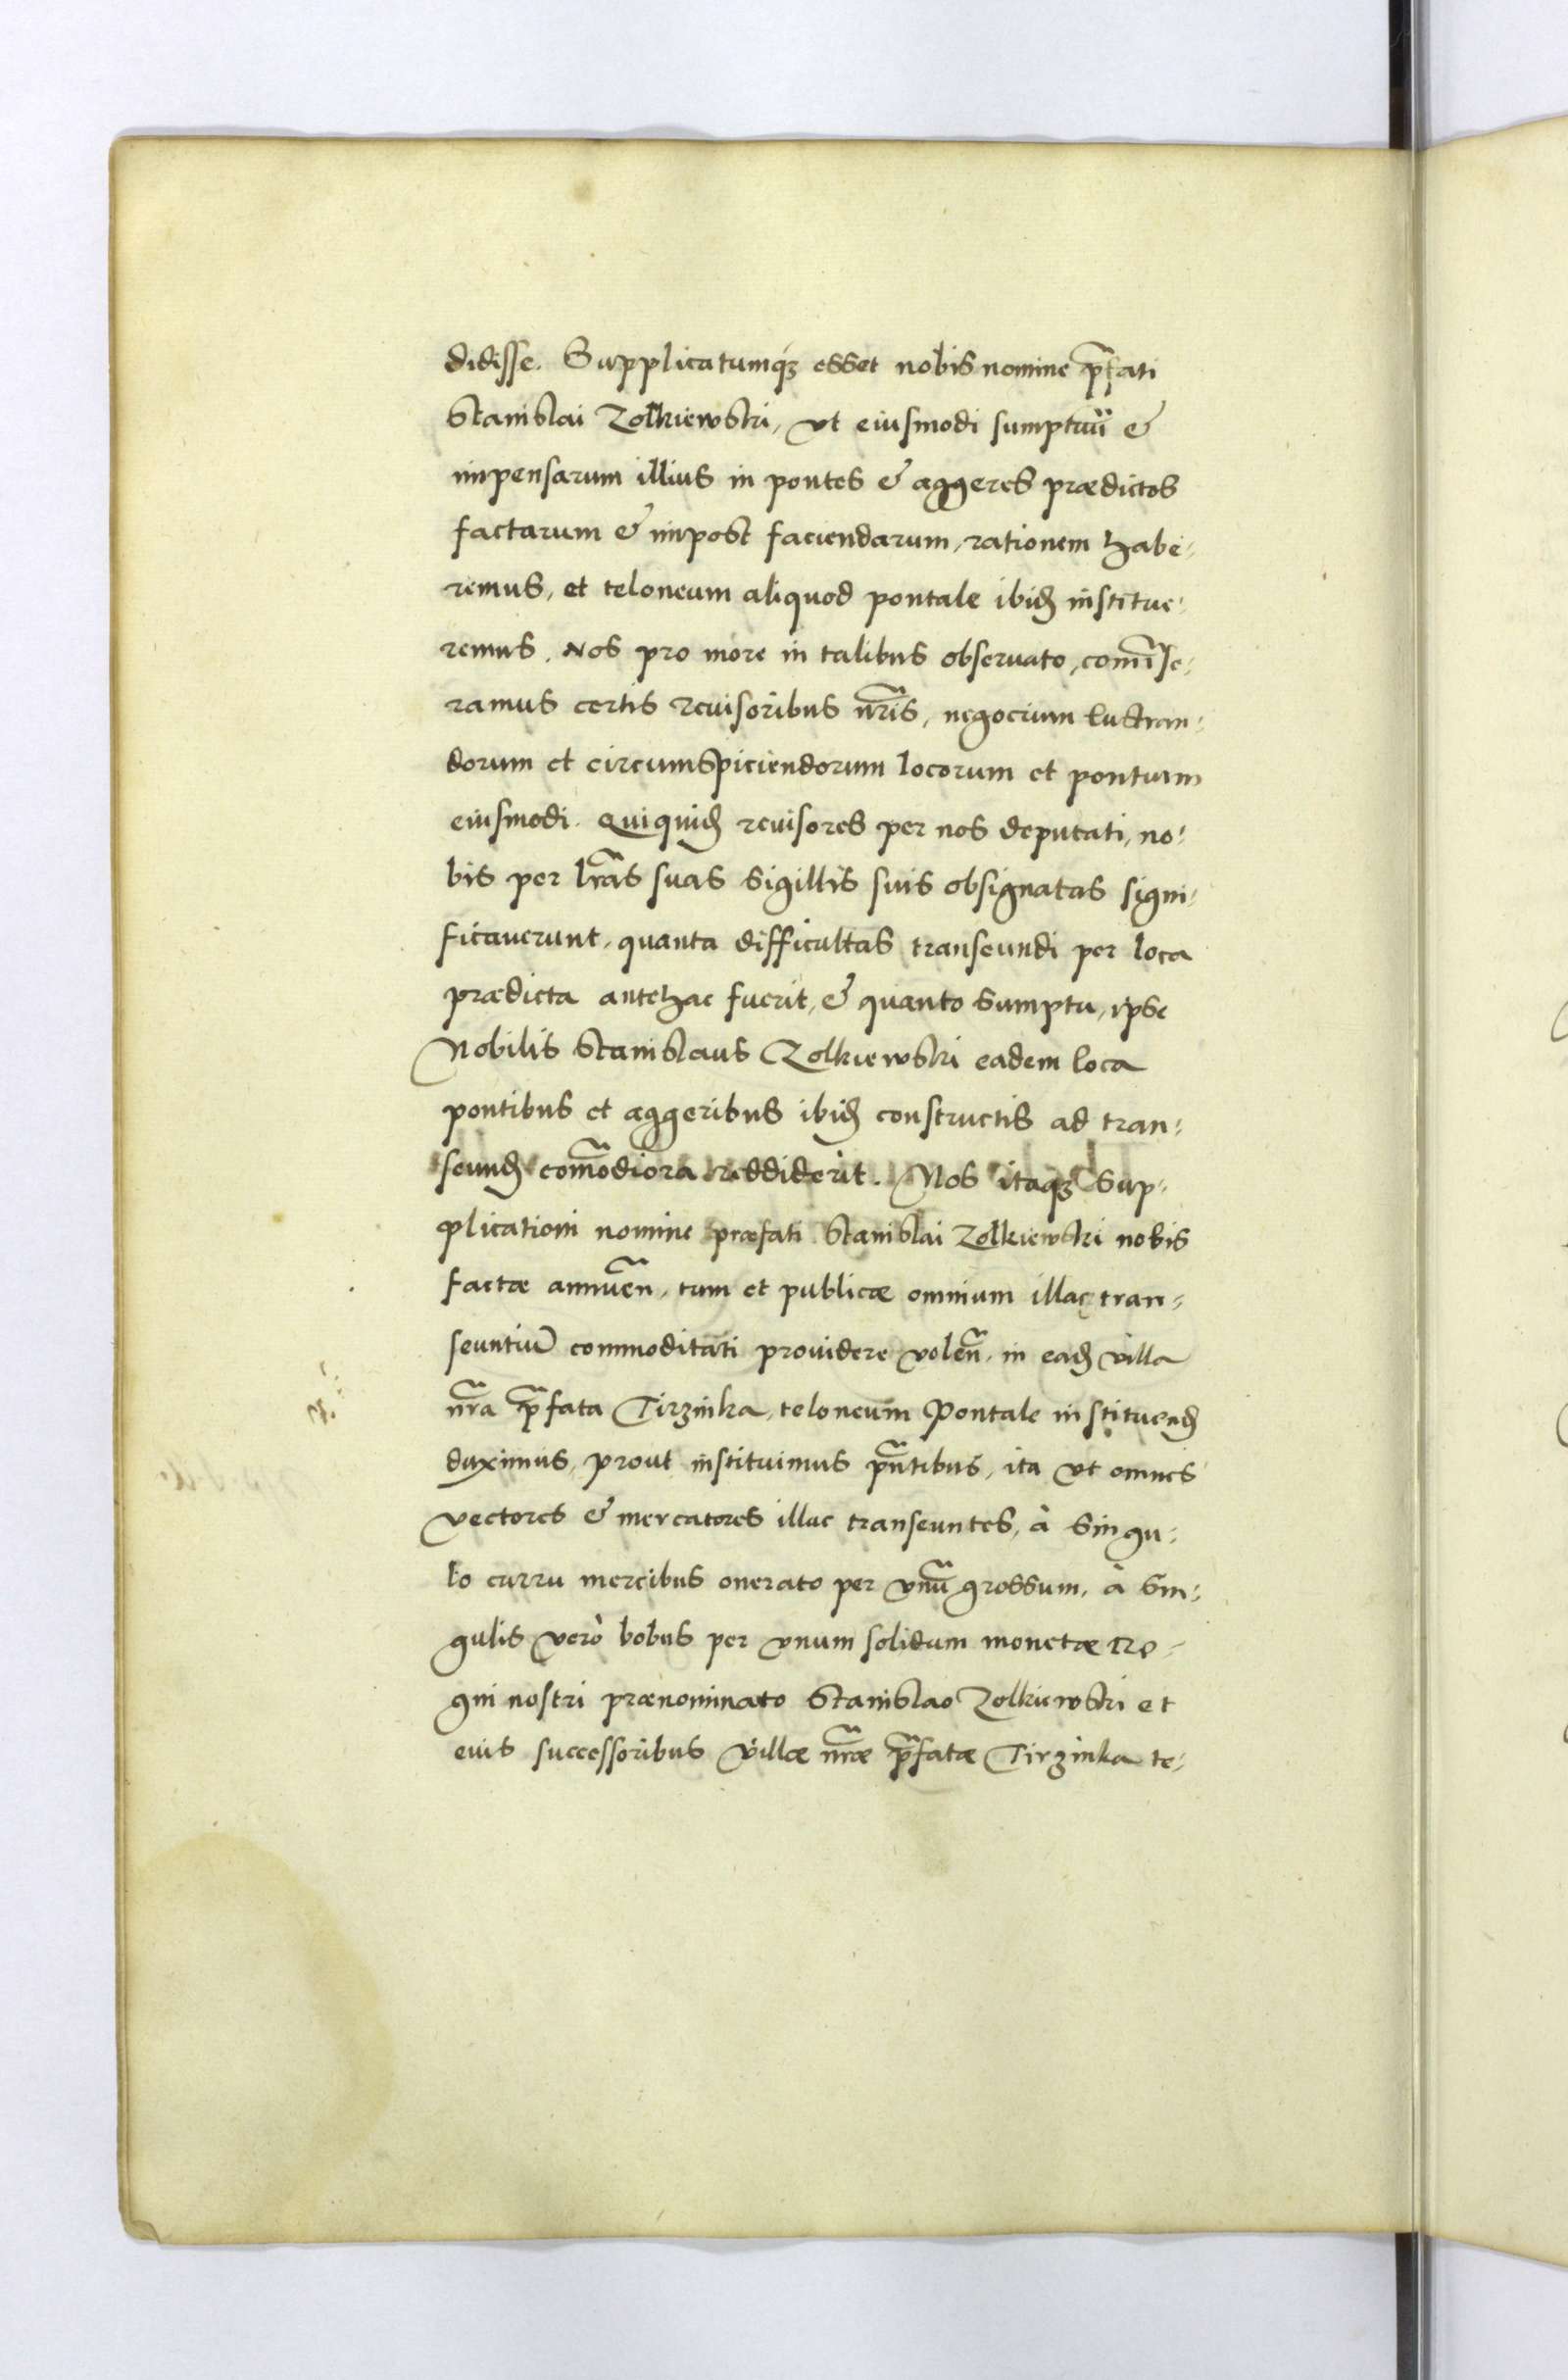 didisse. Supplicatumq́ꝫ esset nobis nomine p̃fati
Stanislai Zolkiewski, vt eiusmodi sumptuũ &
impensarum illius in pontes & aggeres prædictos
factarum & impost faciendarum, rationem habe-
remus, et teloneum aliquod pontale ibid̨ institue-
remus. Nos pro more in talibus obseruato, com̃ise-
ramus certis reuisoribus nr̃is, negocium lustran-
dorum et circumspiciendorum locorum et pontium
eiusmodi. Quiquid̨ reuisores per nos deputati, no-
bis per lr̃as suas sigillis suis obsignatas signi-
ficauerunt, quanta difficultas transeundi per loca
prædicta antehac fuerit, & quanto sumptu, ipse
Nobilis Stanislaus Zolkiewski eadem loca
pontibus et aggeribus ibid̨ constructis ad tran-
seund̨ com̃odiora reddiderit. Nos itaqꝫ sup-
plicationi nomine præfati Stanislai Zolkiewski nobis
factæ annueñ, tum et publicæ omnium illac tran-
seuntiũ commoditati prouidere voleñ, in ead̨ villa
nr̃a p̃fata Tirzinka, teloneum Pontale instituend̨
duximus, prout instituimus p̃ntibus, ita vt omnes
vectores & mercatores illac transeuntes, à singu-
lo curru mercibus onerato per vnũ grossum, à sin-
gulis verò bobus per vnum solidum monetæ Re-
gni nostri prænominato Stanislao Zolkiewski et
eius successoribus villæ nr̃æ p̃fatæ Tirzinka te-